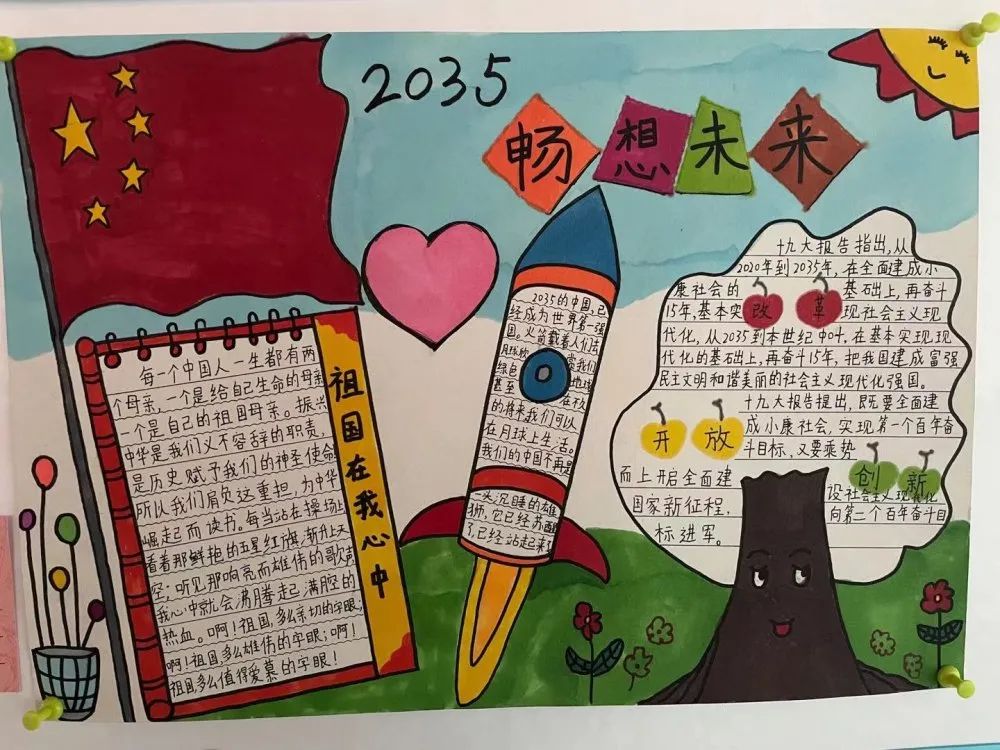 2035
畅想未来
每一个中国人一生都有两
个母亲,一个是给自己生命的母亲
一个是自己的祖国母亲。振兴
中华是我们义不容辞的职责,
是历史赋予我们的神圣使命
所以我们肩负这重担,为中华
崛起而读书。每当站在操场上
看着那鲜艳的五星红旗,渐升上天
空;听见那响亮而雄伟的歌声
我心中就会沸腾起,满腔的
热血。啊!祖国,多么亲切的字眼;
啊!祖国,多么雄伟的字眼;啊!
祖国,多么值得爱慕的字眼!
祖国在我心中
2035的中国,已
经成为世界第一强
国。火箭载着人们去
月球
绿色 地球
甚至 在不久
的将来我们可以
在月球上生活。
我们的中国不再是
一头沉睡的雄
狮,它已经苏醒
了,已经站起来了
十九大报告指出,从
2020年到2035年,在全面建成小
康社会的 基础上,再奋斗
15年,基本实 改 革 现社会主义现
代化,从2035到本世纪中叶,在基本实现现
代化的基础上,再奋斗15年,把我国建成富强
民主文明和谐美丽的社会主义现代化强国。
十九大报告提出,既要全面建
开 放 成小康社会,实现第一个百年奋
斗目标,又要乘势
而上开启全面建 创 新 设社会主义现代化
国家新征程, 向第二个百年奋斗目
标进军。